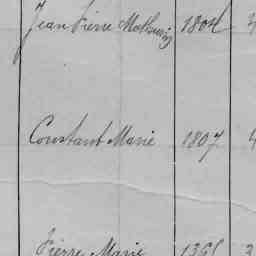 Jean Pierre Mathurin 1804
Constant Marie 1807 4
Pierre Marie